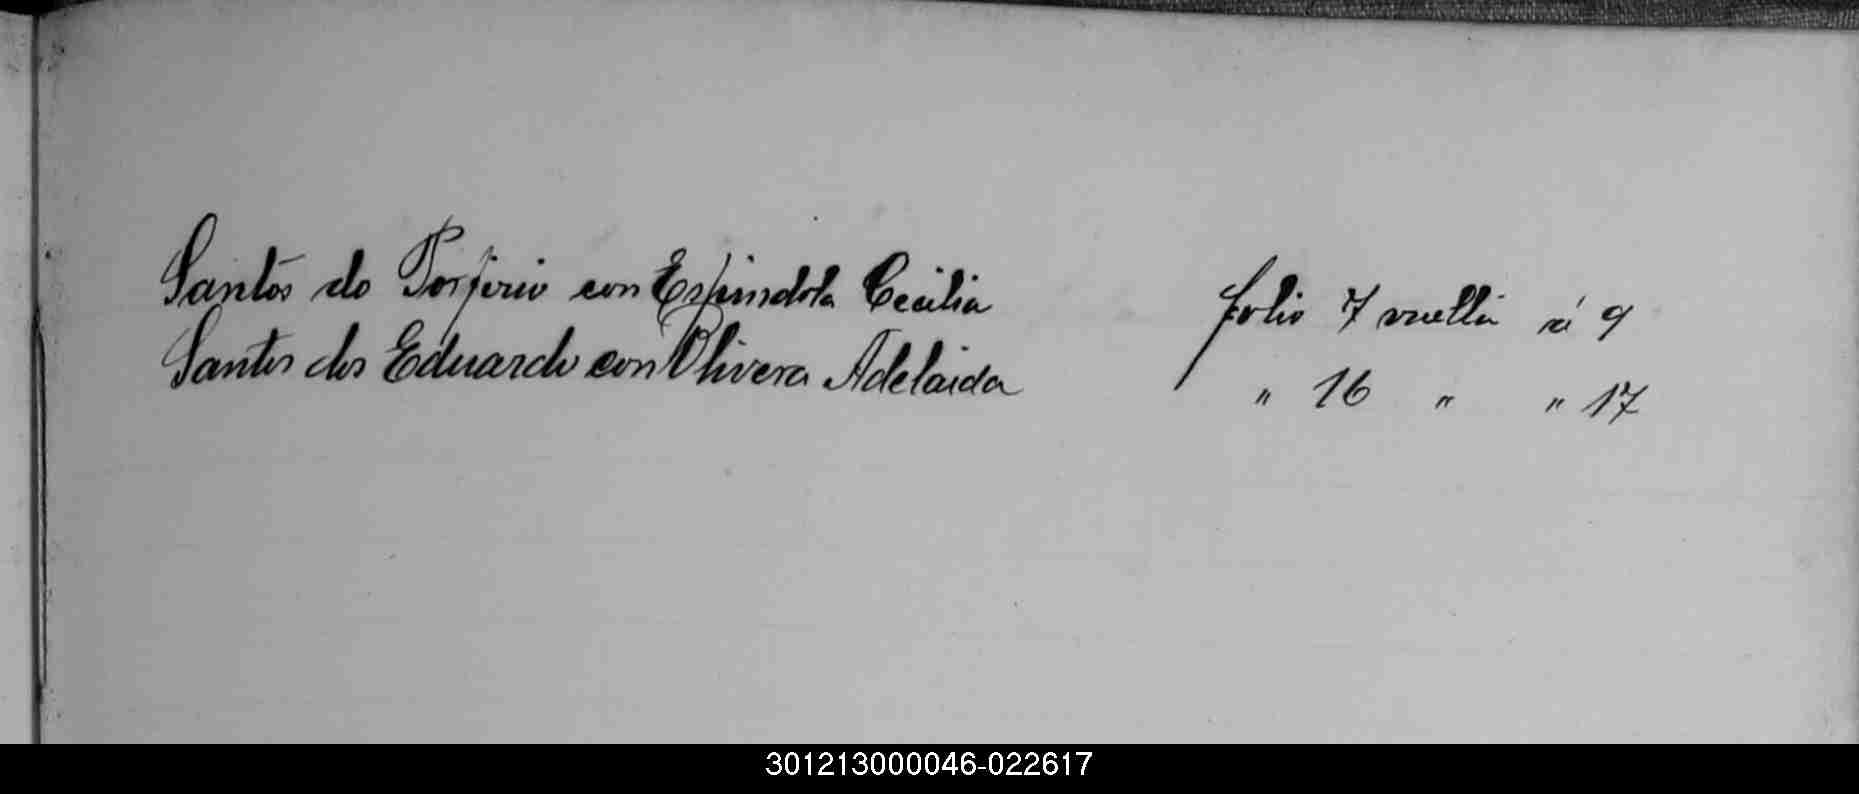 Santos do Porfirio con Espindola Cecilia folio 7 vuelta á 9
Santos dos Eduardo con Olivera Adelaida " 16 " " 17
301213000046-022617